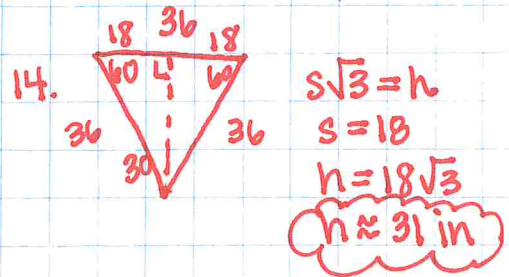 36
18 18
14. 60 60
36 36
30
s√3 = h
s = 18
h = 18√3
h ≈ 31 in